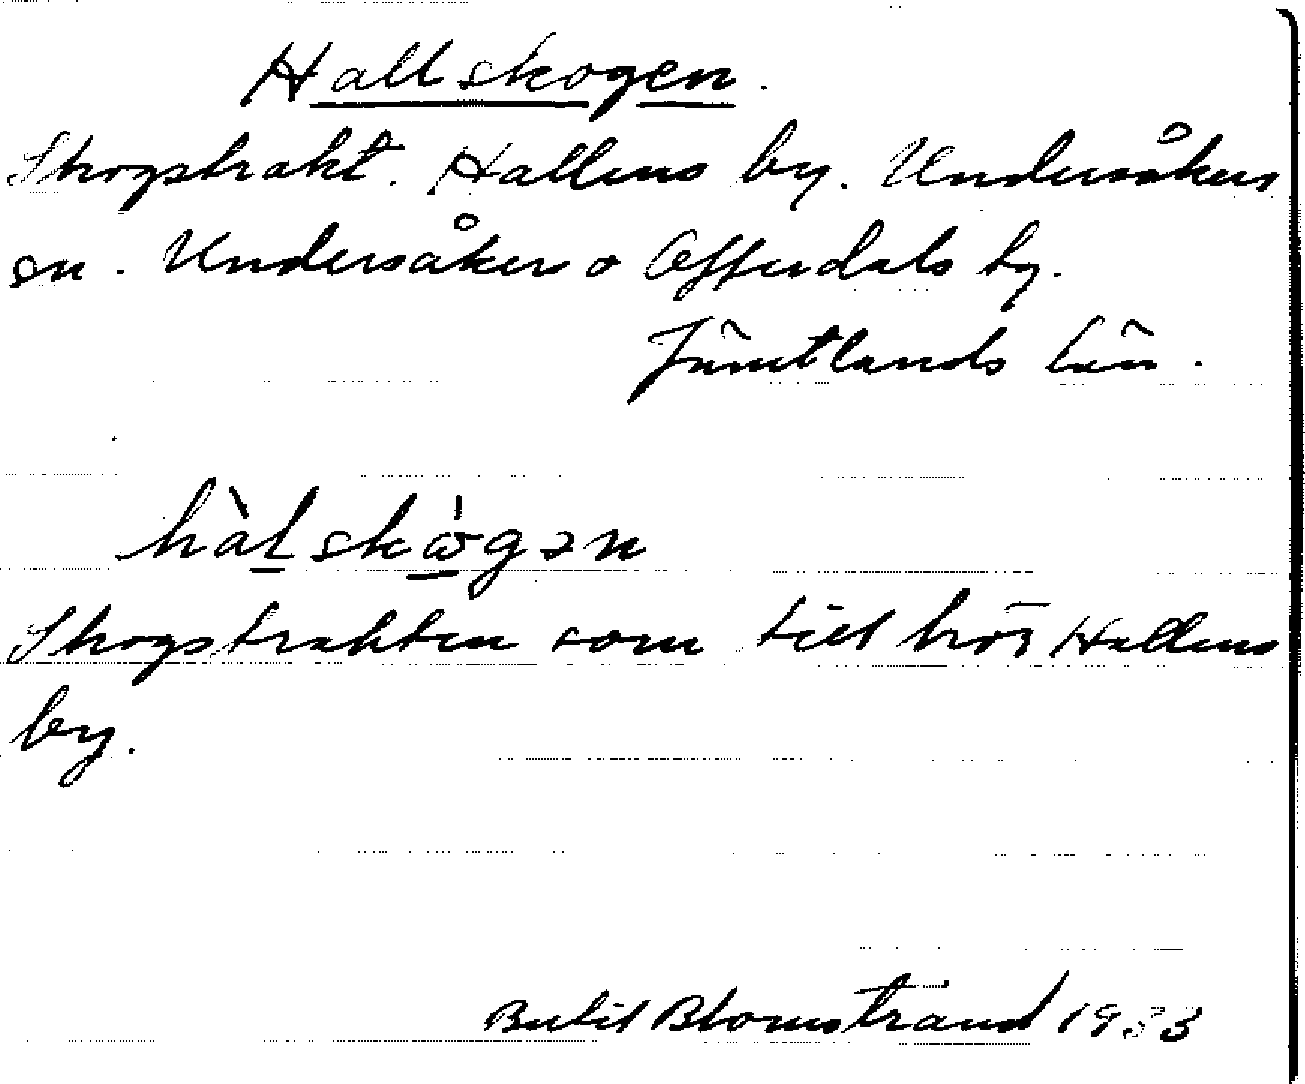 Hallskogen.
Skogstrakt. Hallens by. Undersåkers
sn. Undersåkers o Offerdals tg.
Jämtlands län.
hàḻskɷ̀̇gən
Skogstrakten som till hör Hallens
by.
Bertil Blomstrand 1933